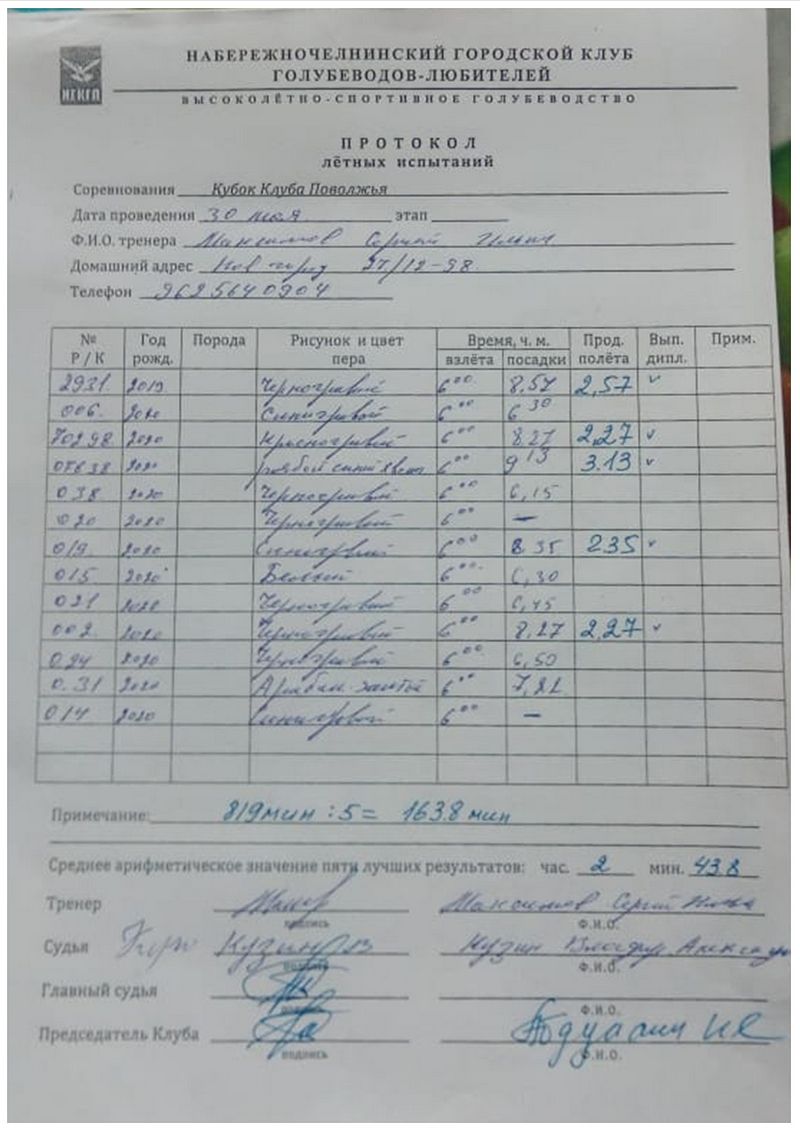 НАБЕРЕЖНОЧЕЛНИНСКИЙ ГОРОДСКОЙ КЛУБ
ГОЛУБЕВОДОВ-ЛЮБИТЕЛЕЙ
НГКГЛ
ВЫСОКОЛЁТНО-СПОРТИВНОЕ ГОЛУБЕВОДСТВО
ПРОТОКОЛ
лётных испытаний
Соревнования Кубок Клуба Поволжья
Дата проведения 30 мая этап
Ф.И.О. тренера Максимов Сергей Ильич
Домашний адрес Нов город 27/12-98
Телефон 9625640904
№ Р/К Год рожд. Порода Рисунок и цвет пера Время, ч. м. взлёта посадки Прод. полёта Вып. дипл. Прим.
2931. 2019 Черногривый 6 00 8,57 2,57 v
006. 2020 Синегривый 6 00 6 30
70298 2020 Красногривый 6 00 8.27 2,27 v
07838 2020 рябой синий 6 00 9 13 3.13 v
038 2020 Черногривый 6 00 6,15
020 2020 Черногривый 6 00 —
019. 2020 Синегривый 6 00 8 35 235 v
015 2020 6 00 6,30
021 2020 Черногривый 6 00 6,45
002. 2020 Черногривый 6 00 8,27 2,27 v
0.24 2020 Черногривый 6 00 6,50
0.31 2020 6 00
014 2020 Синегривый 6 00 —
Примечание: 819мин : 5 = 163.8 мин
Среднее арифметическое значение пяти лучших результатов: час. 2 мин. 43.8
Тренер Максимов Сергей
подпись Ф.И.О.
Судья Кузин Кузин
подпись Ф.И.О.
Главный судья
подпись Ф.И.О.
Председатель Клуба
подпись Ф.И.О.